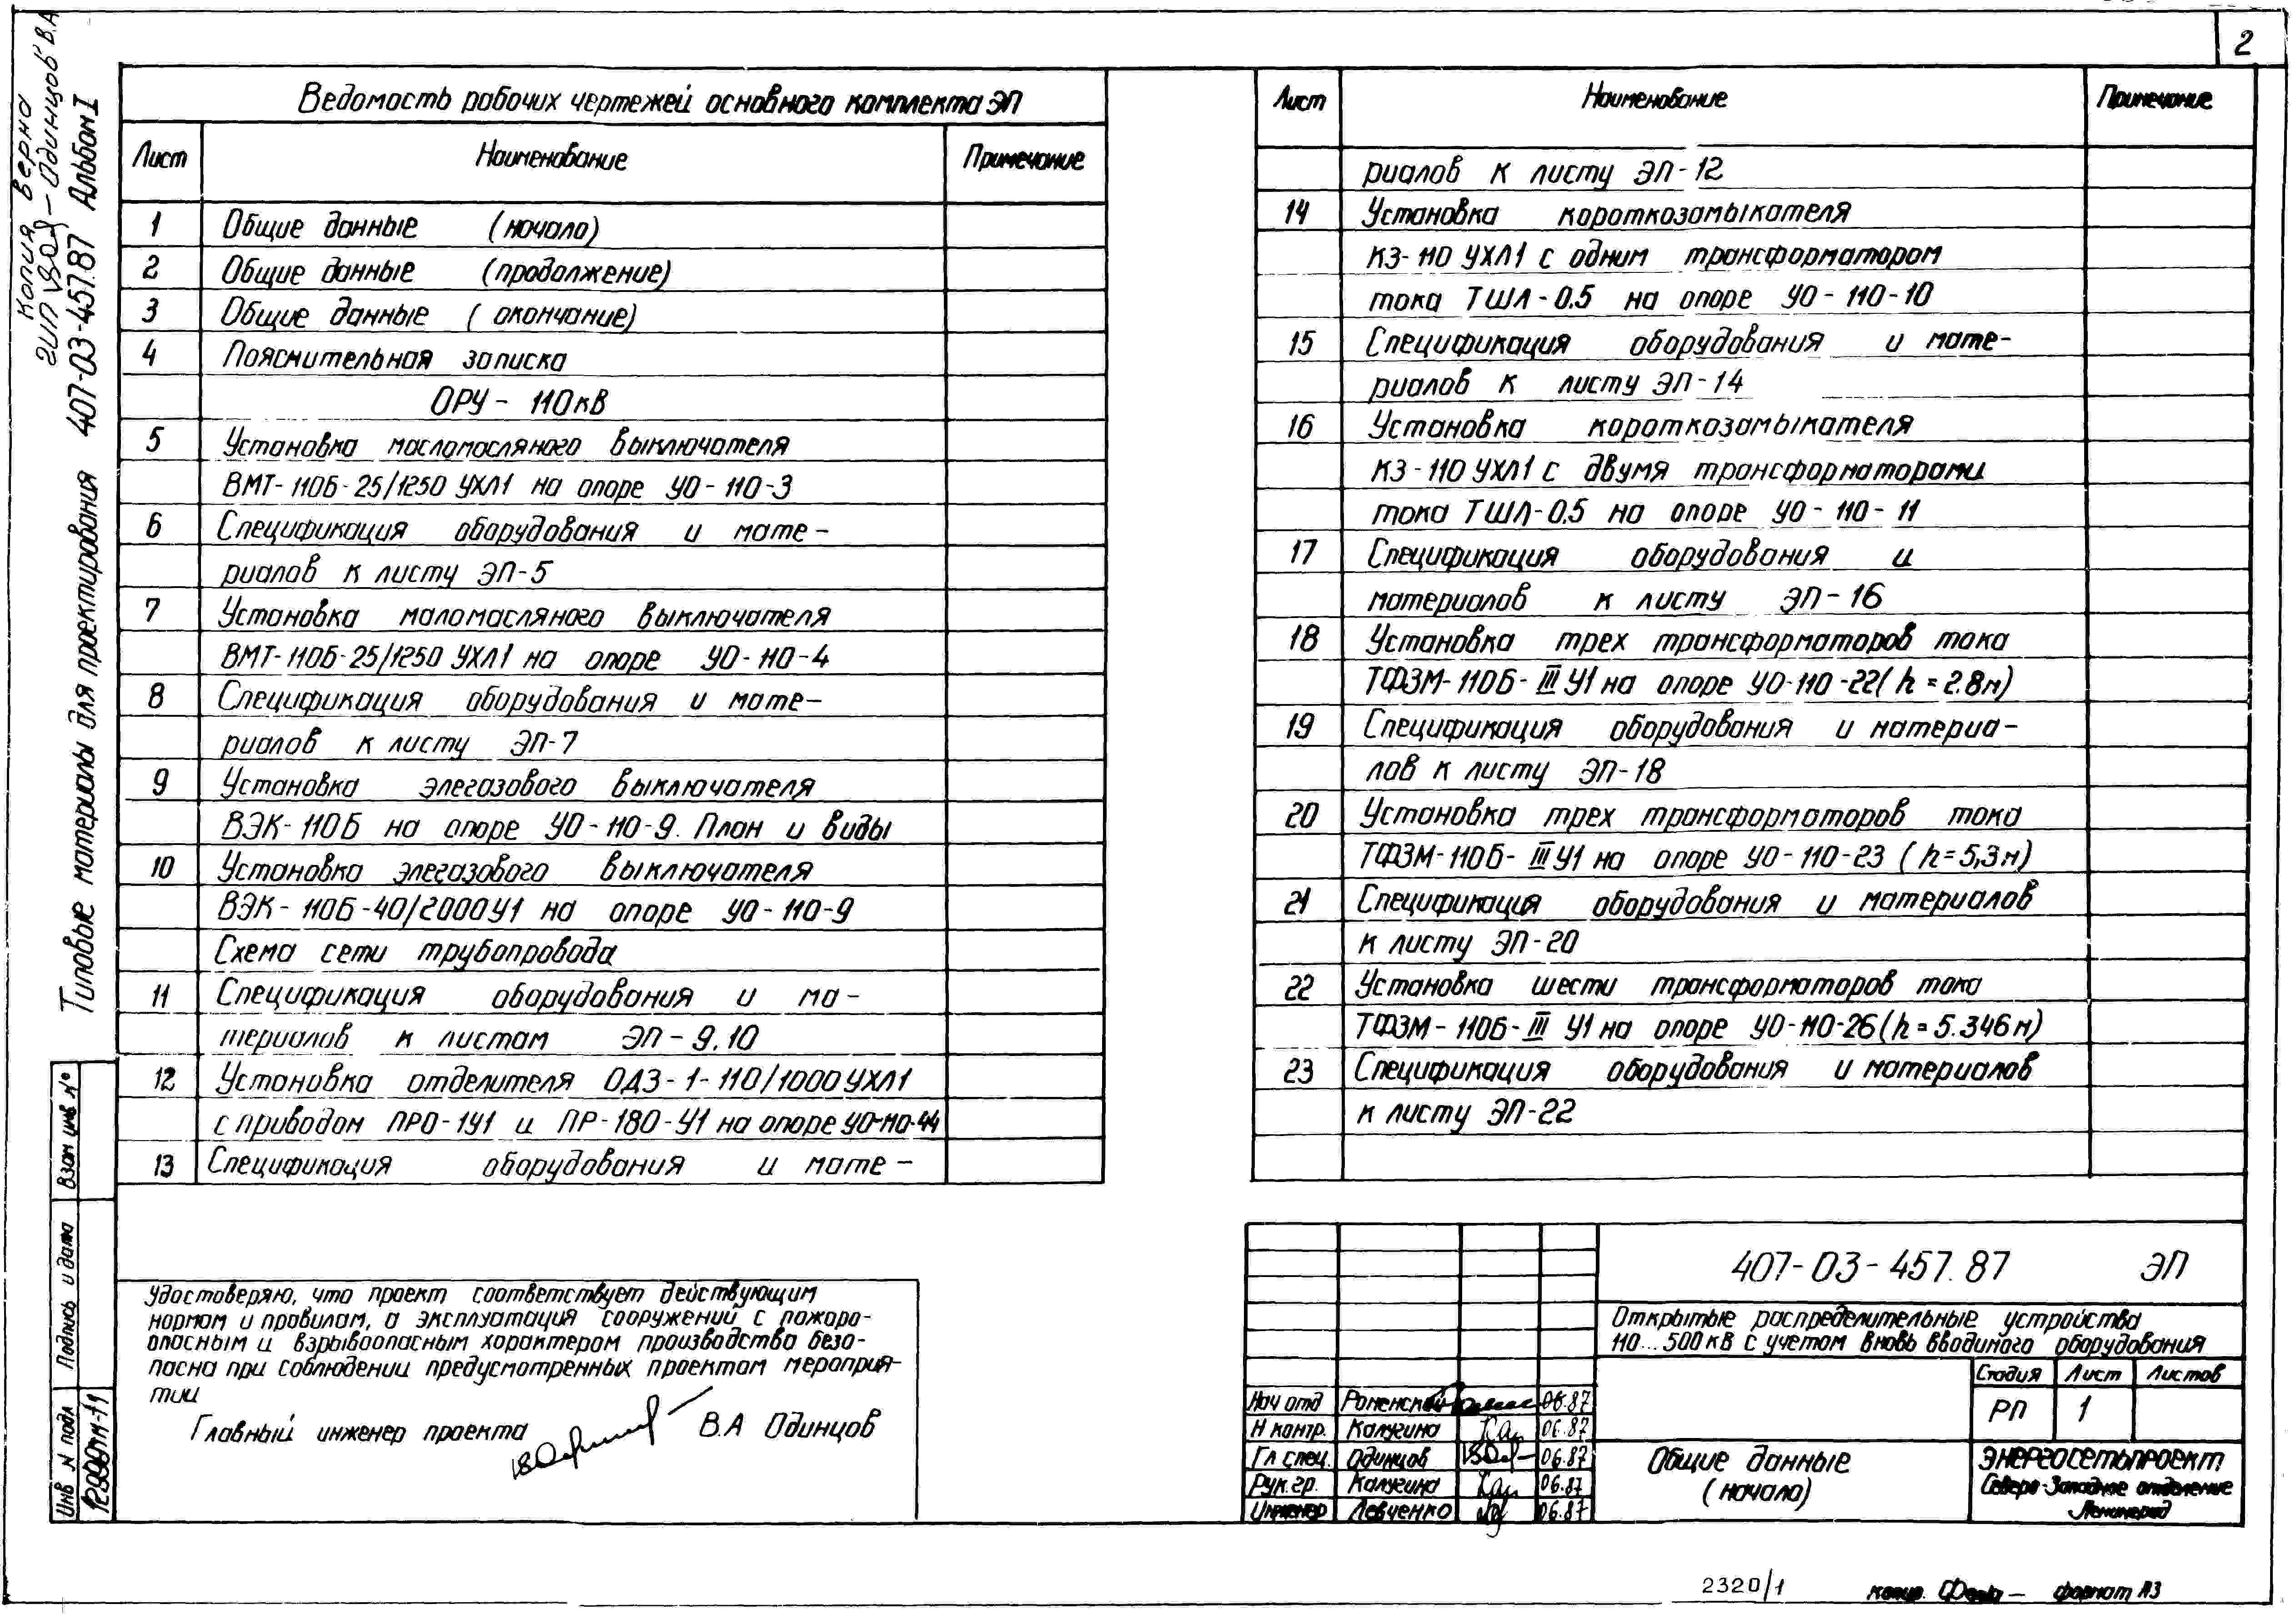 2
Копия верна
ГИП – Одинцов В.А
Типовые материалы для проектирования 407-03-457.87 Альбом I
Ведомость рабочих чертежей основного комплекта ЭП
Лист Наименование Примечание
1 Общие данные (начало)
2 Общие данные (продолжение)
3 Общие данные (окончание)
4 Пояснительная записка
ОРУ - 110кВ
5 Установка масломасляного выключателя
ВМТ-110Б-25/1250 УХЛ1 на опоре УО-110-3
6 Спецификация оборудования и мате-
риалов к листу ЭП-5
7 Установка маломасляного выключателя
ВМТ-110Б-25/1250 УХЛ1 на опоре УО-110-4
8 Спецификация оборудования и мате-
риалов к листу ЭП-7
9 Установка элегазового выключателя
ВЭК-110Б на опоре УО-110-9. План и виды
10 Установка элегазового выключателя
ВЭК-110Б-40/2000У1 на опоре УО-110-9
Схема сети трубопровода
11 Спецификация оборудования и ма-
териалов к листам ЭП-9,10
12 Установка отделителя ОДЗ-1-110/1000 УХЛ1
с приводом ПРО-1У1 и ПР-180-У1 на опоре УО-110-44
13 Спецификация оборудования и мате-
Лист Наименование Примечание
риалов к листу ЭП-12
14 Установка короткозамыкателя
КЗ-110 УХЛ1 с одним трансформатором
тока ТШЛ-0.5 на опоре УО-110-10
15 Спецификация оборудования и мате-
риалов к листу ЭП-14
16 Установка короткозамыкателя
КЗ-110 УХЛ1 с двумя трансформаторами
тока ТШЛ-0,5 на опоре УО-110-11
17 Спецификация оборудования и
материалов к листу ЭП-16
18 Установка трех трансформаторов тока
ТФЗМ-110Б-III У1 на опоре УО-110-22 (h=2.8м)
19 Спецификация оборудования и материа-
лов к листу ЭП-18
20 Установка трех трансформаторов тока
ТФЗМ-110Б-III У1 на опоре УО-110-23 (h=5,3м)
21 Спецификация оборудования и материалов
к листу ЭП-20
22 Установка шести трансформаторов тока
ТФЗМ-110Б-III У1 на опоре УО-110-26 (h=5.346м)
23 Спецификация оборудования и материалов
к листу ЭП-22
Взам инв №
Подпись и дата
Инв N подл
Удостоверяю, что проект соответствует действующим
нормам и правилам, а эксплуатация сооружений с пожаро-
опасным и взрывоопасным характером производства безо-
пасна при соблюдении предусмотренных проектом мероприя-
тии
Главный инженер проекта В.А Одинцов
407-03-457.87 ЭП
Открытые распределительные устройства
110...500кВ с учетом вновь вводимого оборудования
Стадия Лист Листов
РП 1
Нач отд Роменский 06.87
Н контр. Калугина 06.87
Гл спец. Одинцов 06.87
Рук.гр. Калугина 06.87
Инженер Левченко 06.87
Общие данные
(начало)
Энергосетьпроект
Северо-Западное отделение
Ленинград
2320/1
копир. формат А3